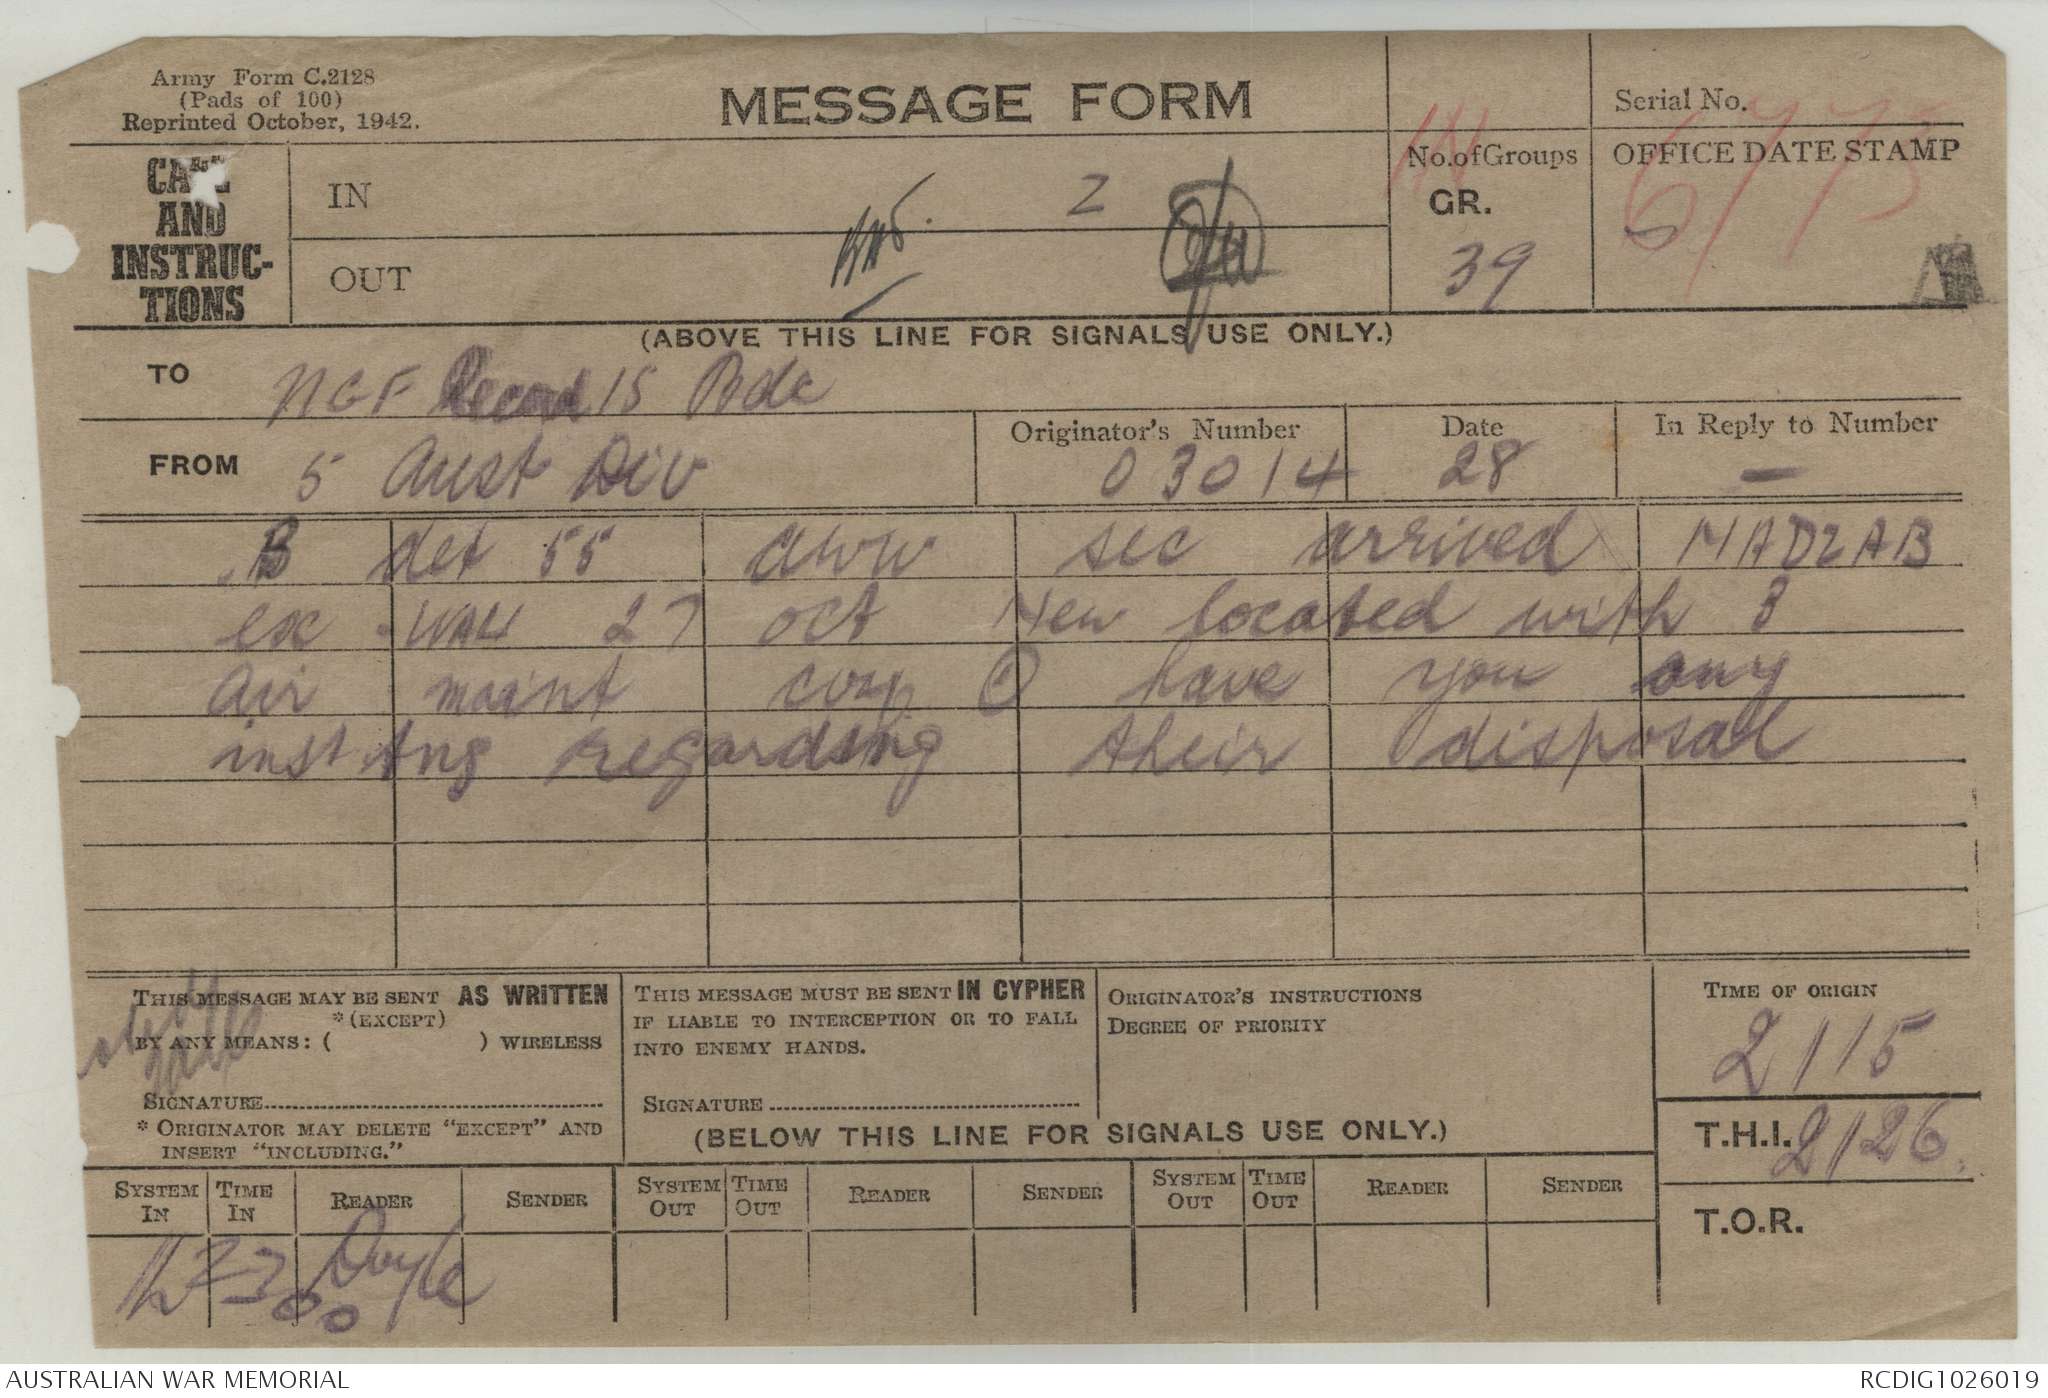 Army Form C.2128
(Pads of 100)
Reprinted October, 1942.
MESSAGE FORM
Serial No.
6/773
CALL
AND
INSTRUC-
TIONS
IN
2
OUT
IN
No. of Groups
GR.
39
OFFICE DATE STAMP
(ABOVE THIS LINE FOR SIGNALS USE ONLY.)
TO
NGF 15 Bde
FROM
5 Aust Div
Originator's Number
03014
Date
28
In Reply to Number
-
B det 55 aww sec arrived NADZAB
ex WAU 27 oct New located with 3
air maint coy have you any
regarding their disposal
THIS MESSAGE MAY BE SENT AS WRITTEN
*(EXCEPT)
BY ANY MEANS: ( ) WIRELESS
SIGNATURE
* ORIGINATOR MAY DELETE "EXCEPT" AND
INSERT "INCLUDING."
THIS MESSAGE MUST BE SENT IN CYPHER
IF LIABLE TO INTERCEPTION OR TO FALL
INTO ENEMY HANDS.
SIGNATURE
ORIGINATOR'S INSTRUCTIONS
DEGREE OF PRIORITY
(BELOW THIS LINE FOR SIGNALS USE ONLY.)
TIME OF ORIGIN
2115
T.H.I. 2126
T.O.R.
SYSTEM IN TIME IN READER SENDER SYSTEM OUT TIME OUT READER SENDER SYSTEM OUT TIME OUT READER SENDER
Doyle
AUSTRALIAN WAR MEMORIAL
RCDIG1026019